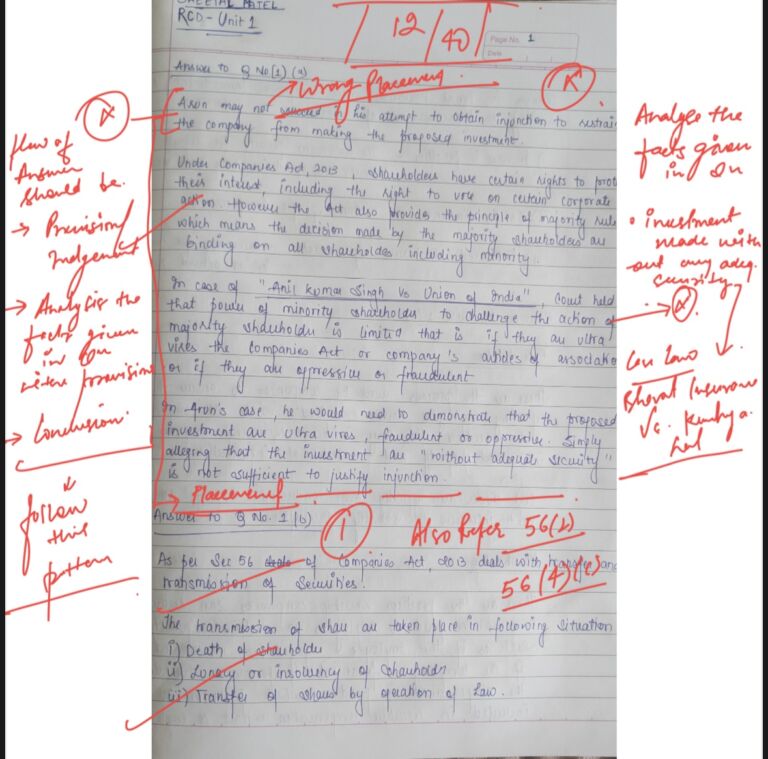 SHEETAL PATEL
RCD - Unit 1
12/40
Page No. 1
Date
Answer to Q No (1) (a)
Wrong Placement
Arun may not succeed in his attempt to obtain injunction to restrai
the company from making the proposed investment.
Under Companies Act, 2013, shareholders have certain rights to prot
their interest, including the right to vote on certain corporate
action. However the Act also provides the principle of majority rule
which means the decision made by the majority shareholders are
binding on all shareholders including minority.
In case of "Anil Kumar Singh Vs Union of India", Court held
that power of minority shareholders to challenge the action of
majority shareholder is limited that is if they are ultra
vires the Companies Act or company's articles of associatio
or if they are oppressive or fraudulent
In Arun's case, he would need to demonstrate that the proposed
investment are ultra vires, fraudulent or oppressive. Simply
alleging that the investment are "without adequate security"
is not sufficient to justify injunction.
→ Placement
Answer to Q No. 1 (b)
1
Also Refer 56(2)
56(4)(c)
As per Sec 56 of Companies Act, 2013 deals with transfer and
transmission of Securities.
The transmission of share are taken place in following situation
i) Death of shareholder
ii) Lunacy or insolvency of shareholder
iii) Transfer of shares by operation of Law.
flow of
Answer
should be.
→ Provision/
Judgement
→ Analysis the
facts given
in Qn
with provision
→ Conclusion.
follow
this
pattern
Analyse the
facts given
in Qn
• investment
made with
out any adeq.
security
Case Laws
Bharat Insurance
Vs. Kanhya
Lal